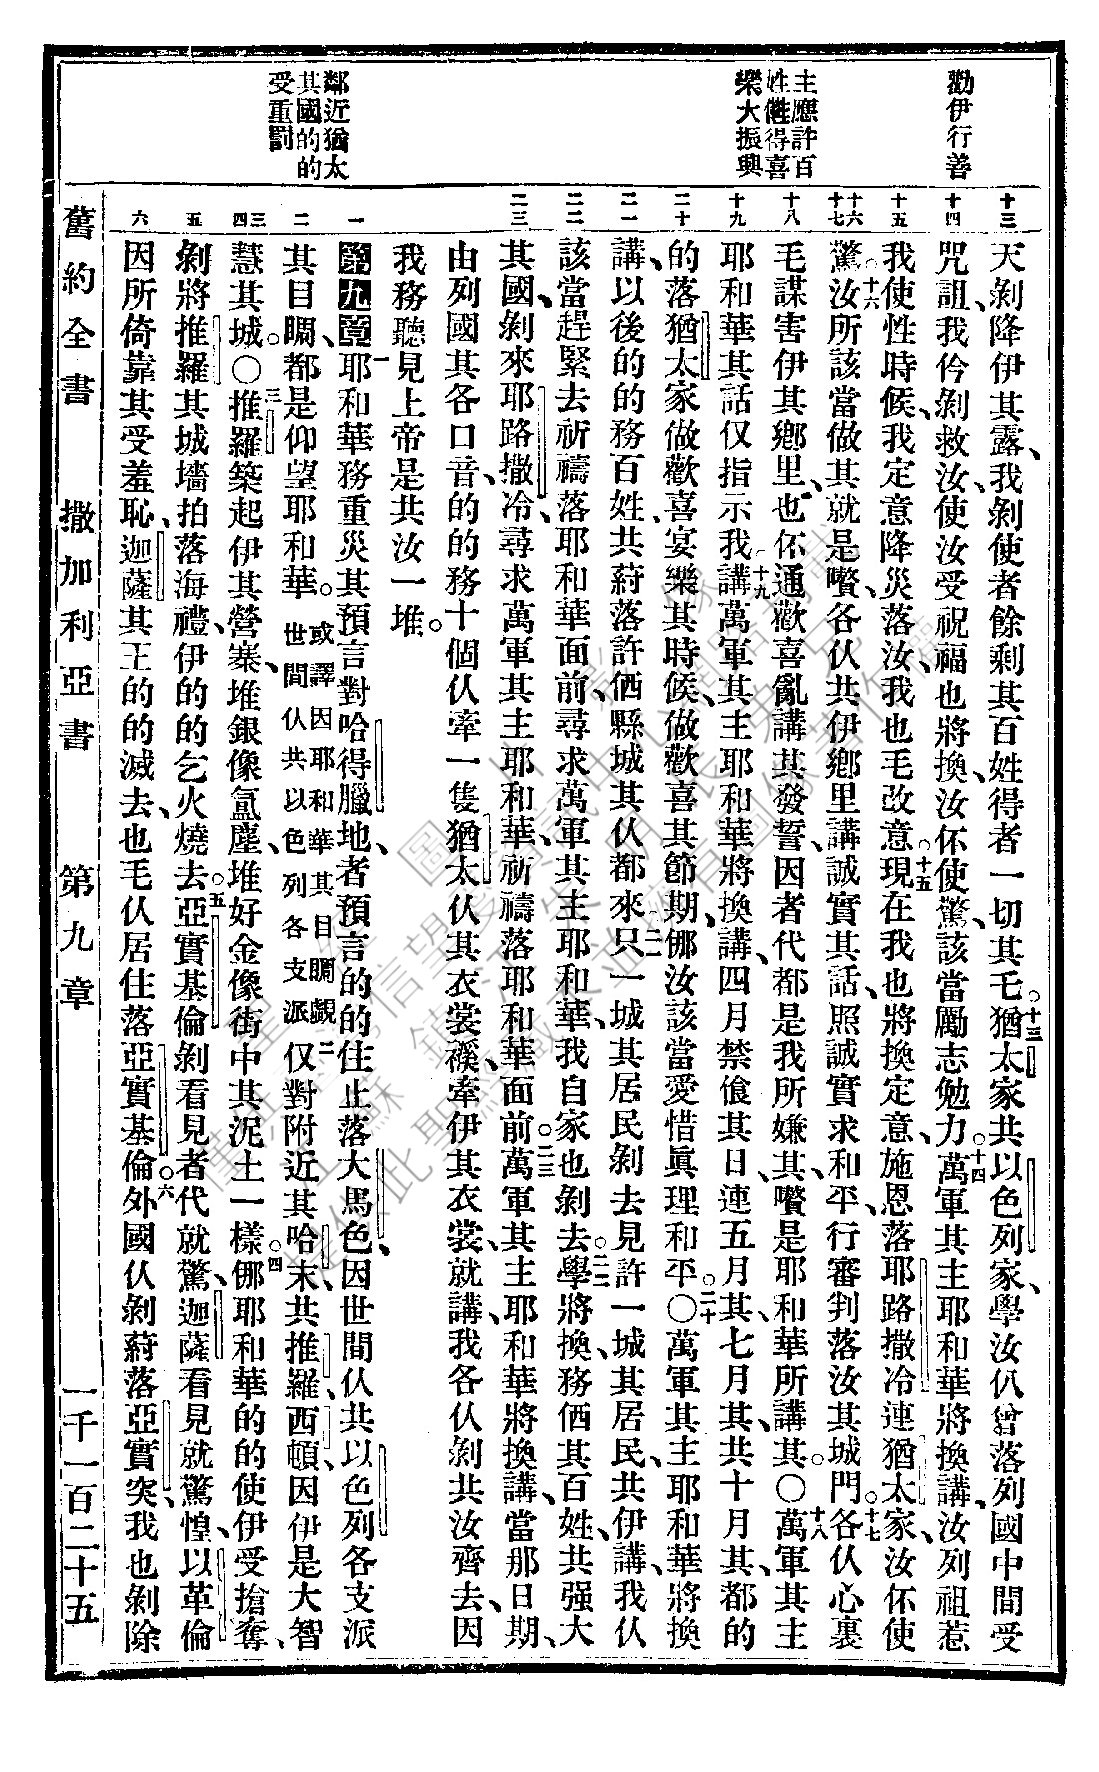 勸伊行善
主應許百
姓僫得喜
樂大振興
鄰近猶太
其國的的
受重罰
十三
十四
十五
十六
十七
十八
十九
二十
二一
二二
二三
一
二
三
四
五
六
天剝降伊其露、我剝使者餘剩其百姓得者一切其乇。十三猶太家共以色列家、學汝仈曾落列國中間受
咒詛、我仱剝救汝、使汝受祝福也將換、汝伓使驚、該當勵志勉力。十四萬軍其主耶和華將換講、汝列祖惹
我使性時候、我定意降災落汝、我也毛改意。十五現在我也將換定意、施恩落耶路撒冷連猶太家、汝伓使
驚。十六汝所該當做其就是嚽、各仈共伊鄉里講誠實其話、照誠實求和平、行審判落汝其城門。十七各仈心裏
毛謀害伊其鄉里、也伓通歡喜亂講其發誓、因者代都是我所嫌其、嚽是耶和華所講其。○十八萬軍其主
耶和華其話仅指示我講、十九萬軍其主耶和華將換講、四月禁飧其日、連五月其、七月其、共十月其、都的
的落猶太家做歡喜宴樂其時候、做歡喜其節期、㑚汝該當愛惜眞理和平。○二十萬軍其主耶和華將換
講、以後的的務百姓、共蔚落許㑚縣城其仈都來、二一只一城其居民剝去見許一城其居民、共伊講、我仈
該當趕緊去祈禱落耶和華面前、尋求萬軍其主耶和華、我自家也剝去。二二學將換、務㑚其百姓、共强大
其國、剝來耶路撒冷、尋求萬軍其主耶和華、祈禱落耶和華面前。二三萬軍其主耶和華將換講、當那日期、
由列國其各口音的的務十個仈牽一隻猶太仈其衣裳襎、牽伊其衣裳、就講、我各仈剝共汝齊去、因
我務聽見上帝是共汝一堆。
第九章、一耶和華務重災其預言對哈得臘地、者預言的的住止落大馬色、因世間仈共以色列各支派
其目睭都是仰望耶和華。或譯因耶和華其目睭觀世間仈共以色列各支派二仅對附近其哈末、共推羅西頓、因伊是大智
慧其城。○三推羅築起伊其營寨、堆銀像氳塵、堆好金像街中其泥土一樣。四㑚耶和華的的使伊受搶奪、
剝將推羅其城墻拍落海禮、伊的的乞火燒去。五亞實基倫剝看見者代就驚、迦薩看見就驚惶、以革倫
因所倚靠其受羞恥、迦薩其王的的滅去、也毛仈居住落亞實基倫。六外國仈剝蔚落亞實突、我也剝除
舊約全書　撒加利亞書　第九章　一千一百二十五